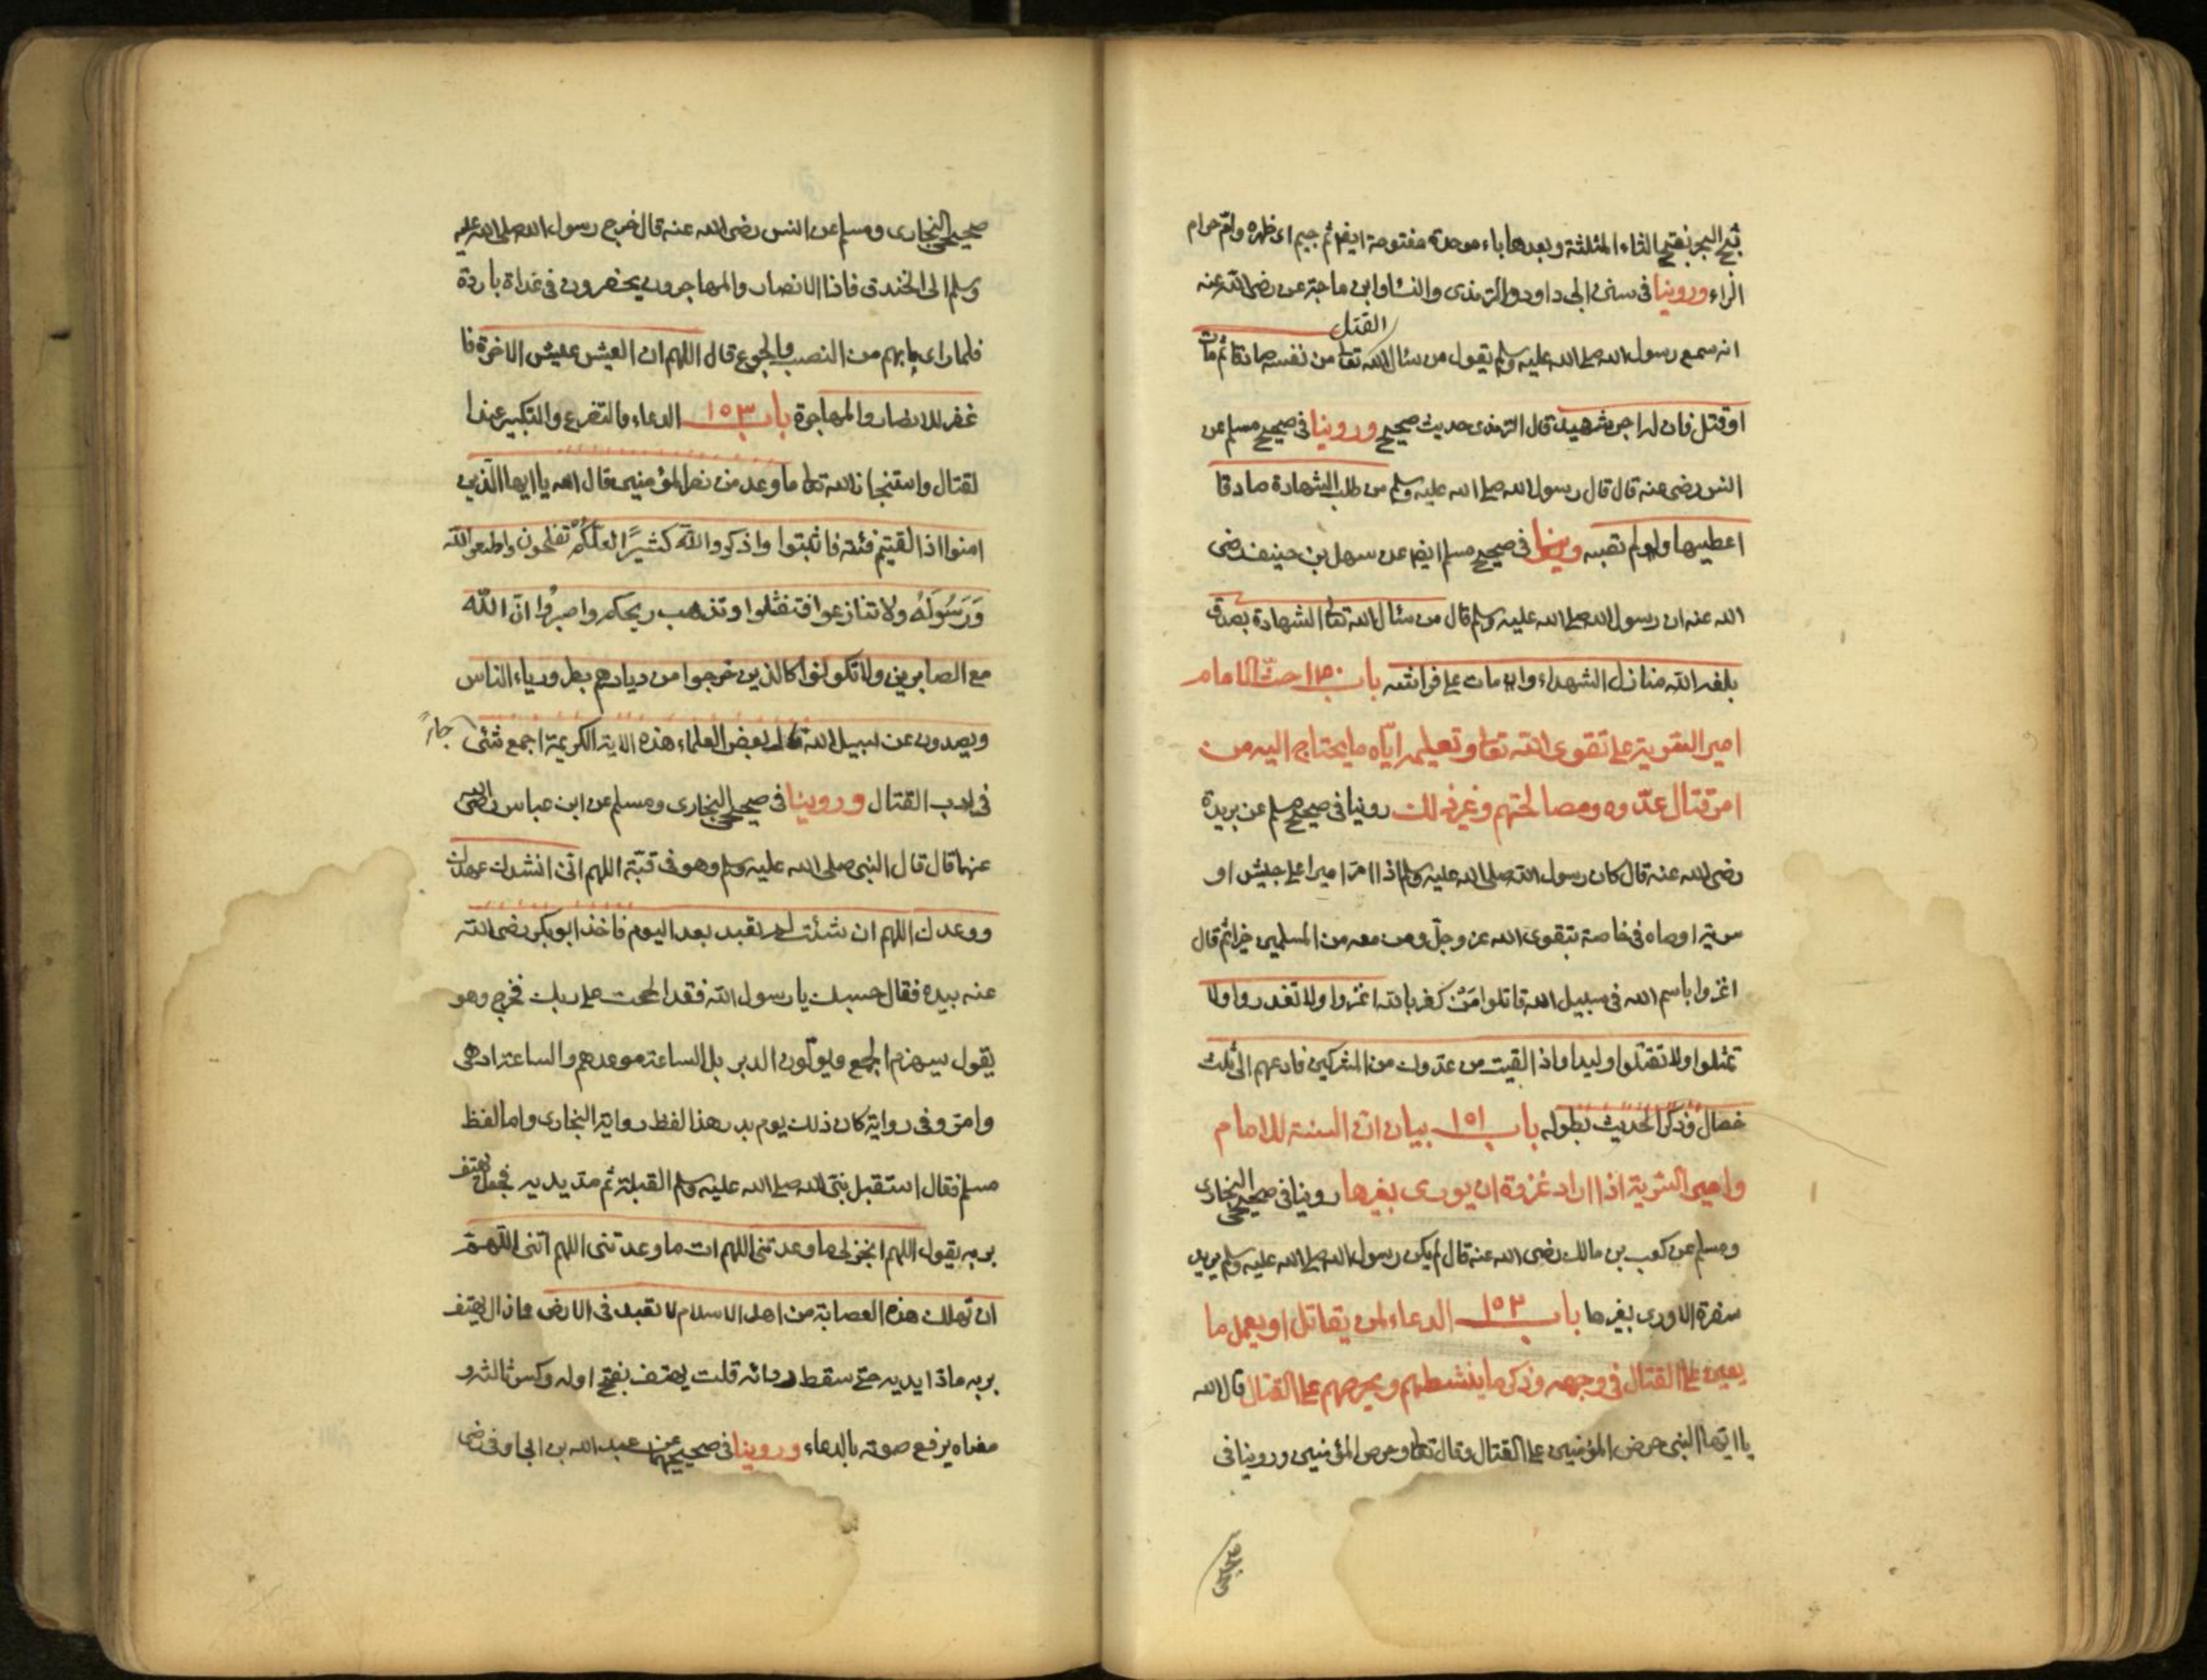 ثبج البحر بفتح الثاء المثلثة وبعدها باء موحدة مفتوحة ايضا ثم جيم اى ظهره وام حرام
الراء وروينا فى سنن ابى داود والترمذى والنسا وابن ماجة عن رضى الله عنه
القتل
انه سمع رسول الله صلى الله عليه وسلم يقول من سئال الله تعا من نفسه صادقا ثم مات
او قتل فان له اجر شهيد قال الترمذى حديث صحيح وروينا فى صحيح مسلم عن
انس رضى عنه قال قال رسول الله صلى الله عليه وسلم من طلب الشهادة صادقا
اعطيها ولو لم تصبه وروينا فى صحيح مسلم ايضا عن سهل بن حنيف رضى
الله عنه ان رسول الله صلى الله عليه وسلم قال من سئال الله تعا الشهادة بصدق
بلغه الله منازل الشهداء وان مات على فراشه باب ١٥٠ حث الامام
امير السرية على تقوى الله تعا وتعليمه اياه ما يحتاج اليه من
امر قتال عدوه ومصالحتهم وغير ذلك روينا فى صحيح مسلم عن بريدة
رضى الله عنه قال كان رسول الله صلى الله عليه وسلم اذا امر اميرا على جيش او
سرية اوصاه فى خاصة بتقوى الله عز وجل ومن معه من المسلمين خيرا ثم قال
اغزوا باسم الله فى سبيل الله قاتلوا من كفر بالله اغزوا ولا تغدروا ولا
تمثلوا ولا تقتلوا وليدا واذا لقيت من عدوك من المشركين فادعهم الى ثلث
خصال وذكر الحديث بطوله باب ١٥١ بيان ان السنة للامام
وامير السرية اذا اراد غزوة ان يورى بغيرها روينا فى صحيحى البخارى
ومسلم عن كعب بن مالك رضى الله عنه قال لم يكن رسول الله صلى الله عليه وسلم يريد
سفرة الا ورى بغيرها باب ١٥٢ الدعاء لمن يقاتل او يعمل ما
يعين على القتال فى وجهه وذكر ما ينشطهم ويحرضهم على القتال قال الله
يا ايها النبى حرض المؤمنين على القتال وقال تعا وحرض المؤمنين وروينا فى
صحيحى
صحيحى البخارى ومسلم عن انس رضى الله عنه قال خرج رسول الله صلى الله عليه
وسلم الى الخندق فاذا الانصار والمهاجرون يحفرون فى غداة باردة
فلما راى ما بهم من النصب والجوع قال اللهم ان العيش عيش الاخرة فا
غفر للانصار والمهاجرة باب ١٥٣ الدعاء والتضرع والتكبير عند ا
لقتال واستنجاز الله تعا ما وعد من نصر المؤمنين قال الله يا ايها الذين
امنوا اذا لقيتم فئة فاثبتوا واذكروا الله كثيرا لعلكم تفلحون واطيعوا الله
ورسوله ولا تنازعوا فتفشلوا وتذهب ريحكم واصبروا ان الله
مع الصابرين ولا تكونوا كالذين خرجوا من ديارهم بطر ورياء الناس
ويصدون عن سبيل الله قال بعض العلماء هذه الاية الكريمة اجمع شئ جاء
فى ادب القتال وروينا فى صحيحى البخارى ومسلم عن ابن عباس رضى الله
عنهما قال قال النبى صلى الله عليه وسلم وهو فى قبة اللهم انى انشدك عهدك
ووعدك اللهم ان شئت لم تعبد بعد اليوم فاخذ ابو بكر رضى الله
عنه بيده فقال حسبك يا رسول الله فقد الححت على ربك فخرج وهو
يقول سيهزم الجمع ويولون الدبر بل الساعة موعدهم والساعة ادهى
وامر وفى رواية كان ذلك يوم بدر هذا لفظ رواية البخارى واما لفظ
مسلم فقال استقبل نبى الله صلى الله عليه وسلم القبلة ثم مد يديه فجعل يهتف
بربه يقول اللهم انجز لى ما وعدتنى اللهم ات ما وعدتنى اللهم
ان تهلك هذه العصابة من اهل الاسلام لا تعبد فى الارض فما زال يهتف
بربه مادا يديه حتى سقط ردائه قلت يهتف بفتح اوله وكسر ثالثه و
معناه يرفع صوته بالدعاء وروينا فى صحيحيهما عن عبد الله بن ابى اوفى رضى